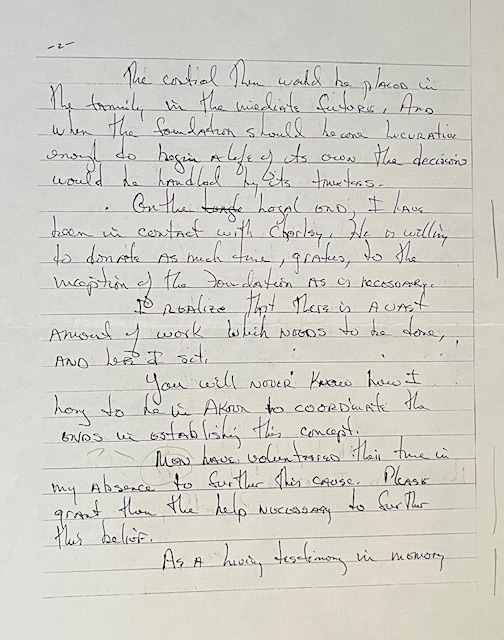 -2-
The control then would be placed in
the family, in the mediate future, And
when the foundation should become lucurative
enough to begin A life of its own the decisions
would be handled by its trustees.
On the legal end, I have
been in contact with Charley. He is willing
to donate As much time, grates, to the
inception of the Foundation As is necessary.
I realize that there is A vast
Amount of work which needs to be done,
And here I sit.
You will never know how I
long to be in Akron to coordinate the
ends in establishing this concept.
Men have volunteered their time in
my Absence to further this cause. Please
grant them the help necessary to further
this belief.
As A living testimony in memory